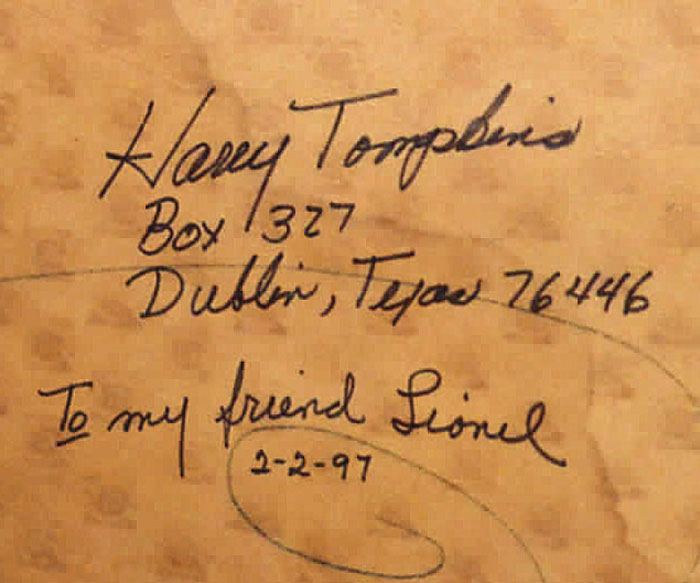 Harry Tompkins
Box 327
Dublin, Texas 76446
To my friend Lionel
2-2-97